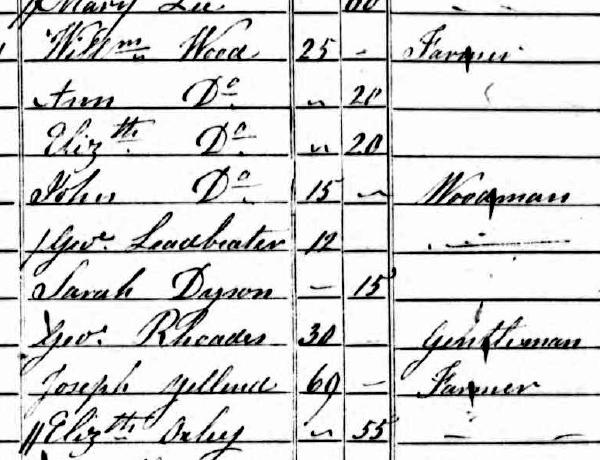 Mary Lee 60
Willm Wood 25 - Farmer
Ann Do " 20
Elizth Do " 20
John Do 15 " Woodman
Geo. Leadbeater 12 -
Sarah Dyson - 15
Geo. Rhoades 30 Gentleman
Joseph 69 - Farmer
Elizth Oxley " 55 - -